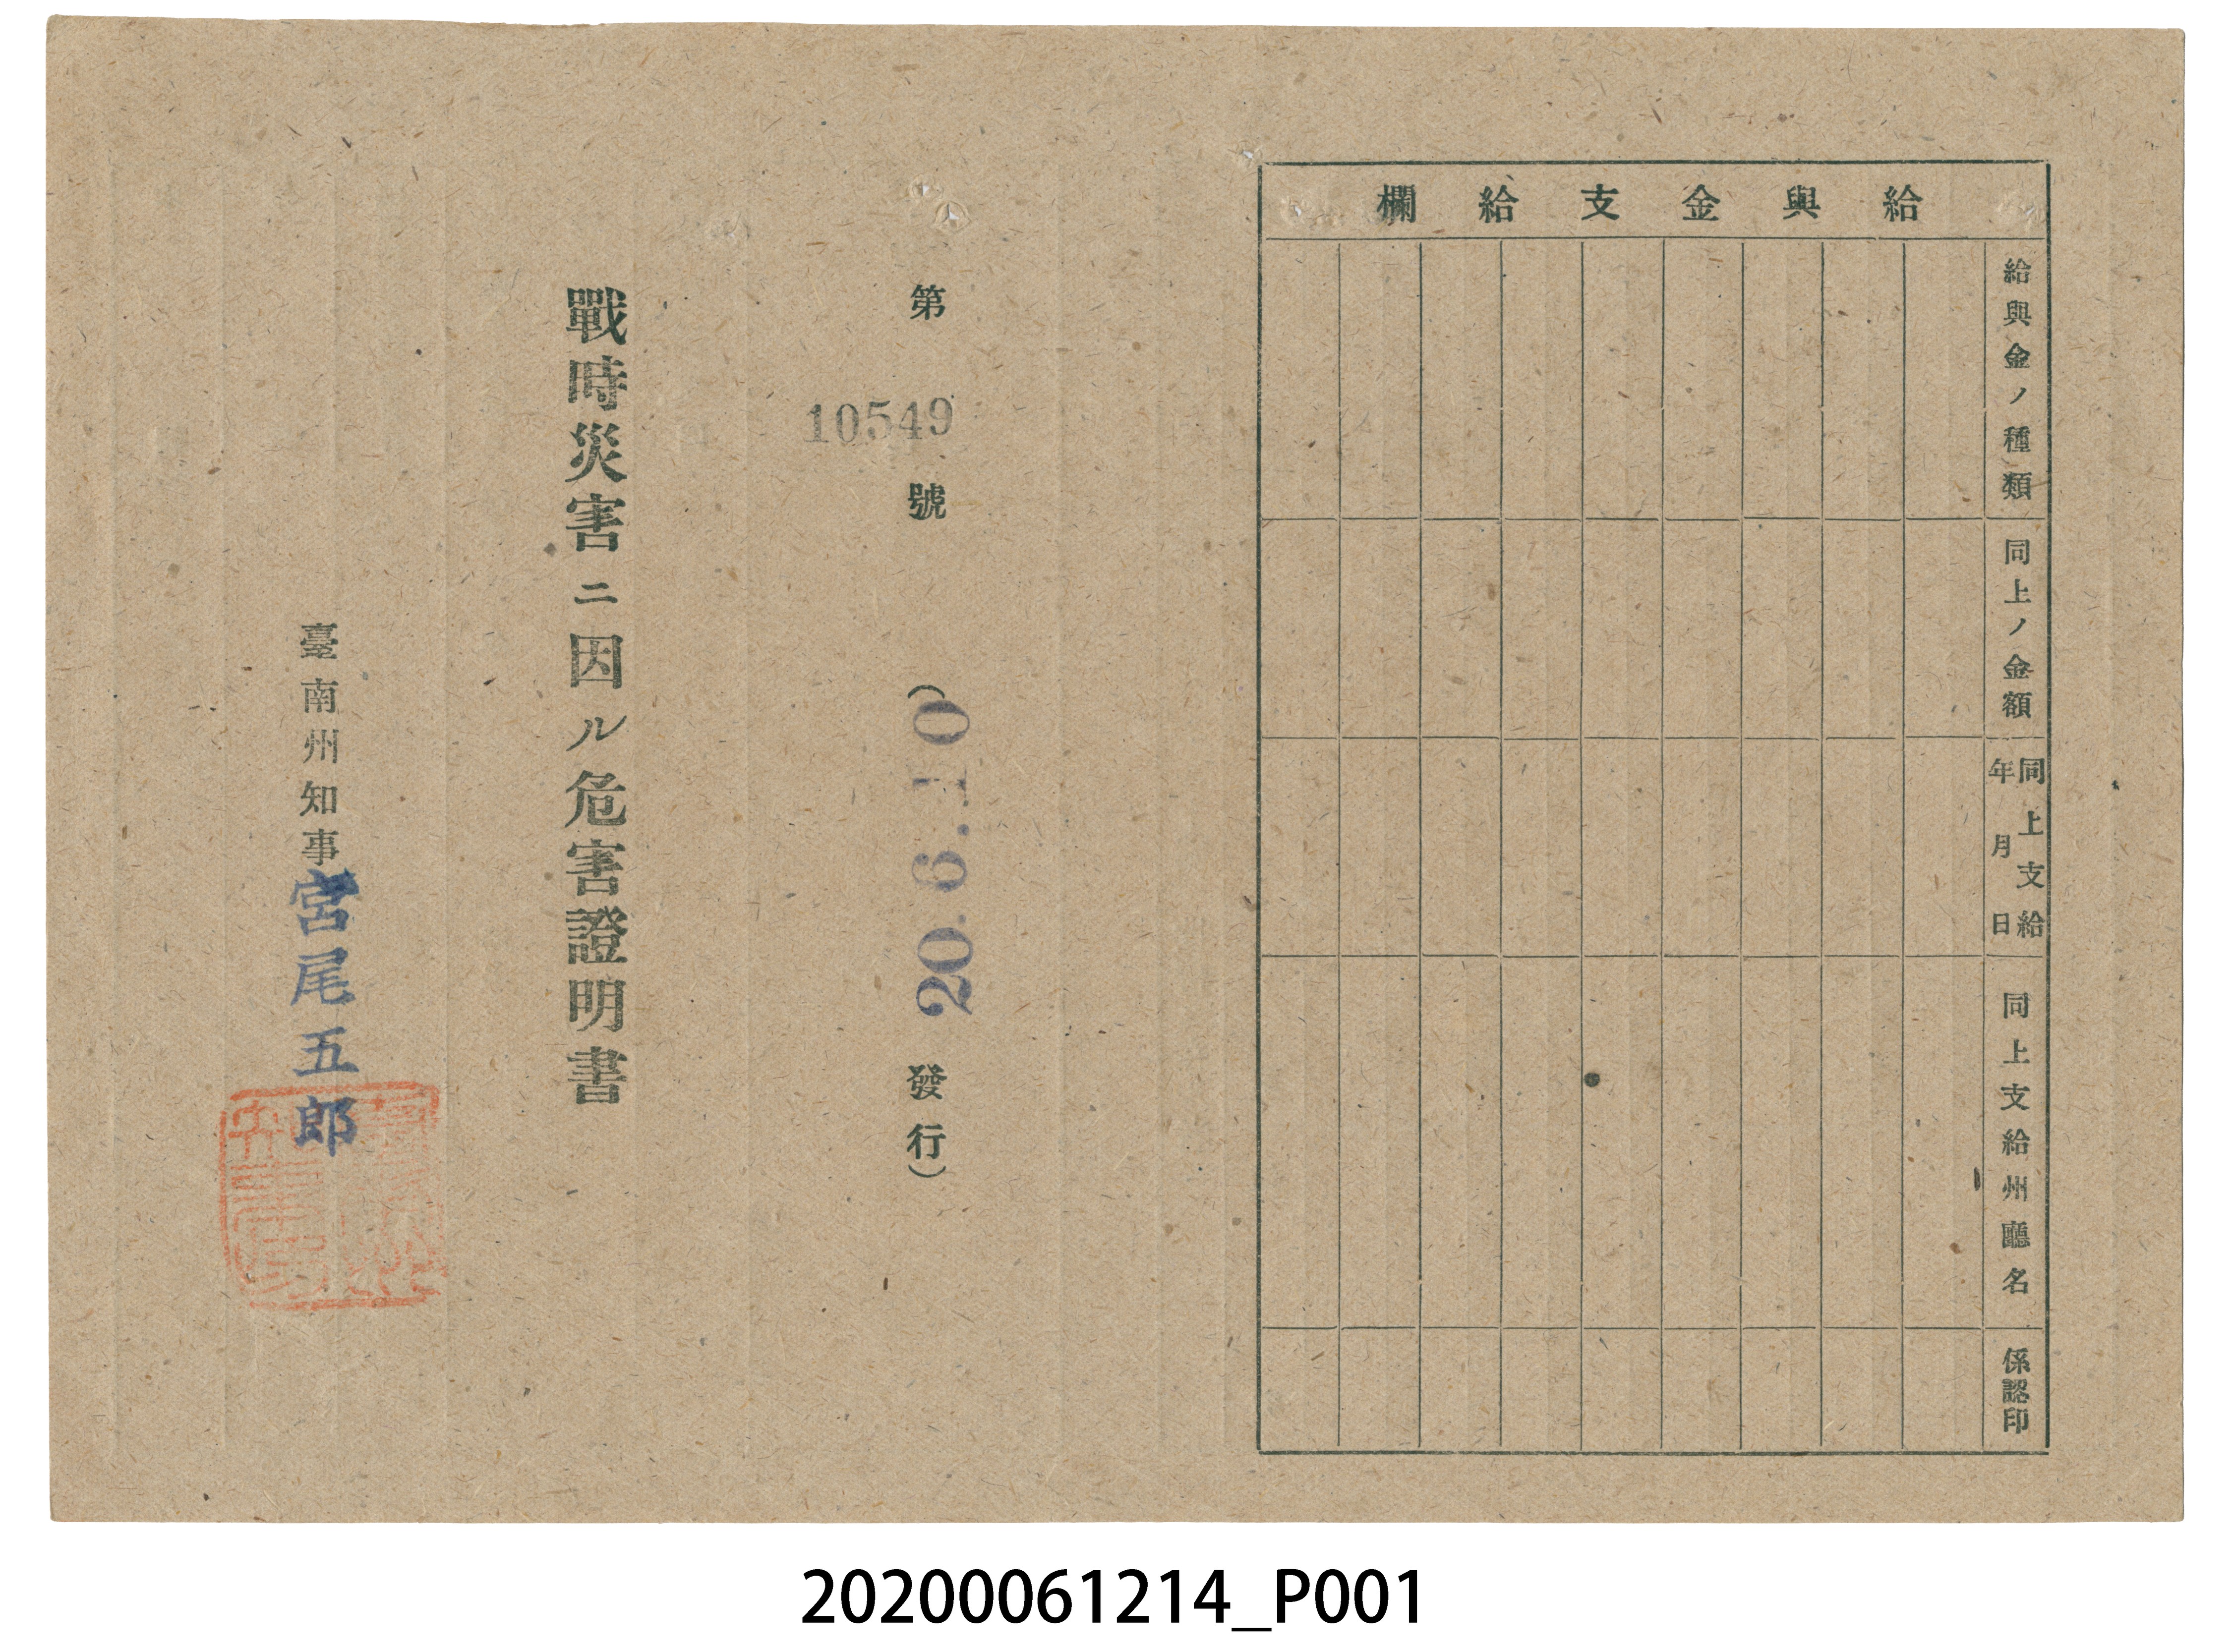 給與金支給欄
給與金ノ種類
同上ノ金額
同上支給
年月日
同上支給州廳名
係認印
第10549號
(20.6.10發行)
戰時災害ニ因ル危害證明書
臺南州知事宮尾五郎
20200061214_P001